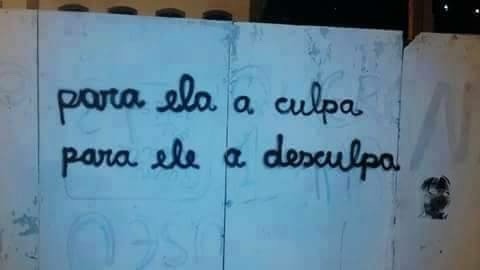 para ela a culpa
para ele a desculpa